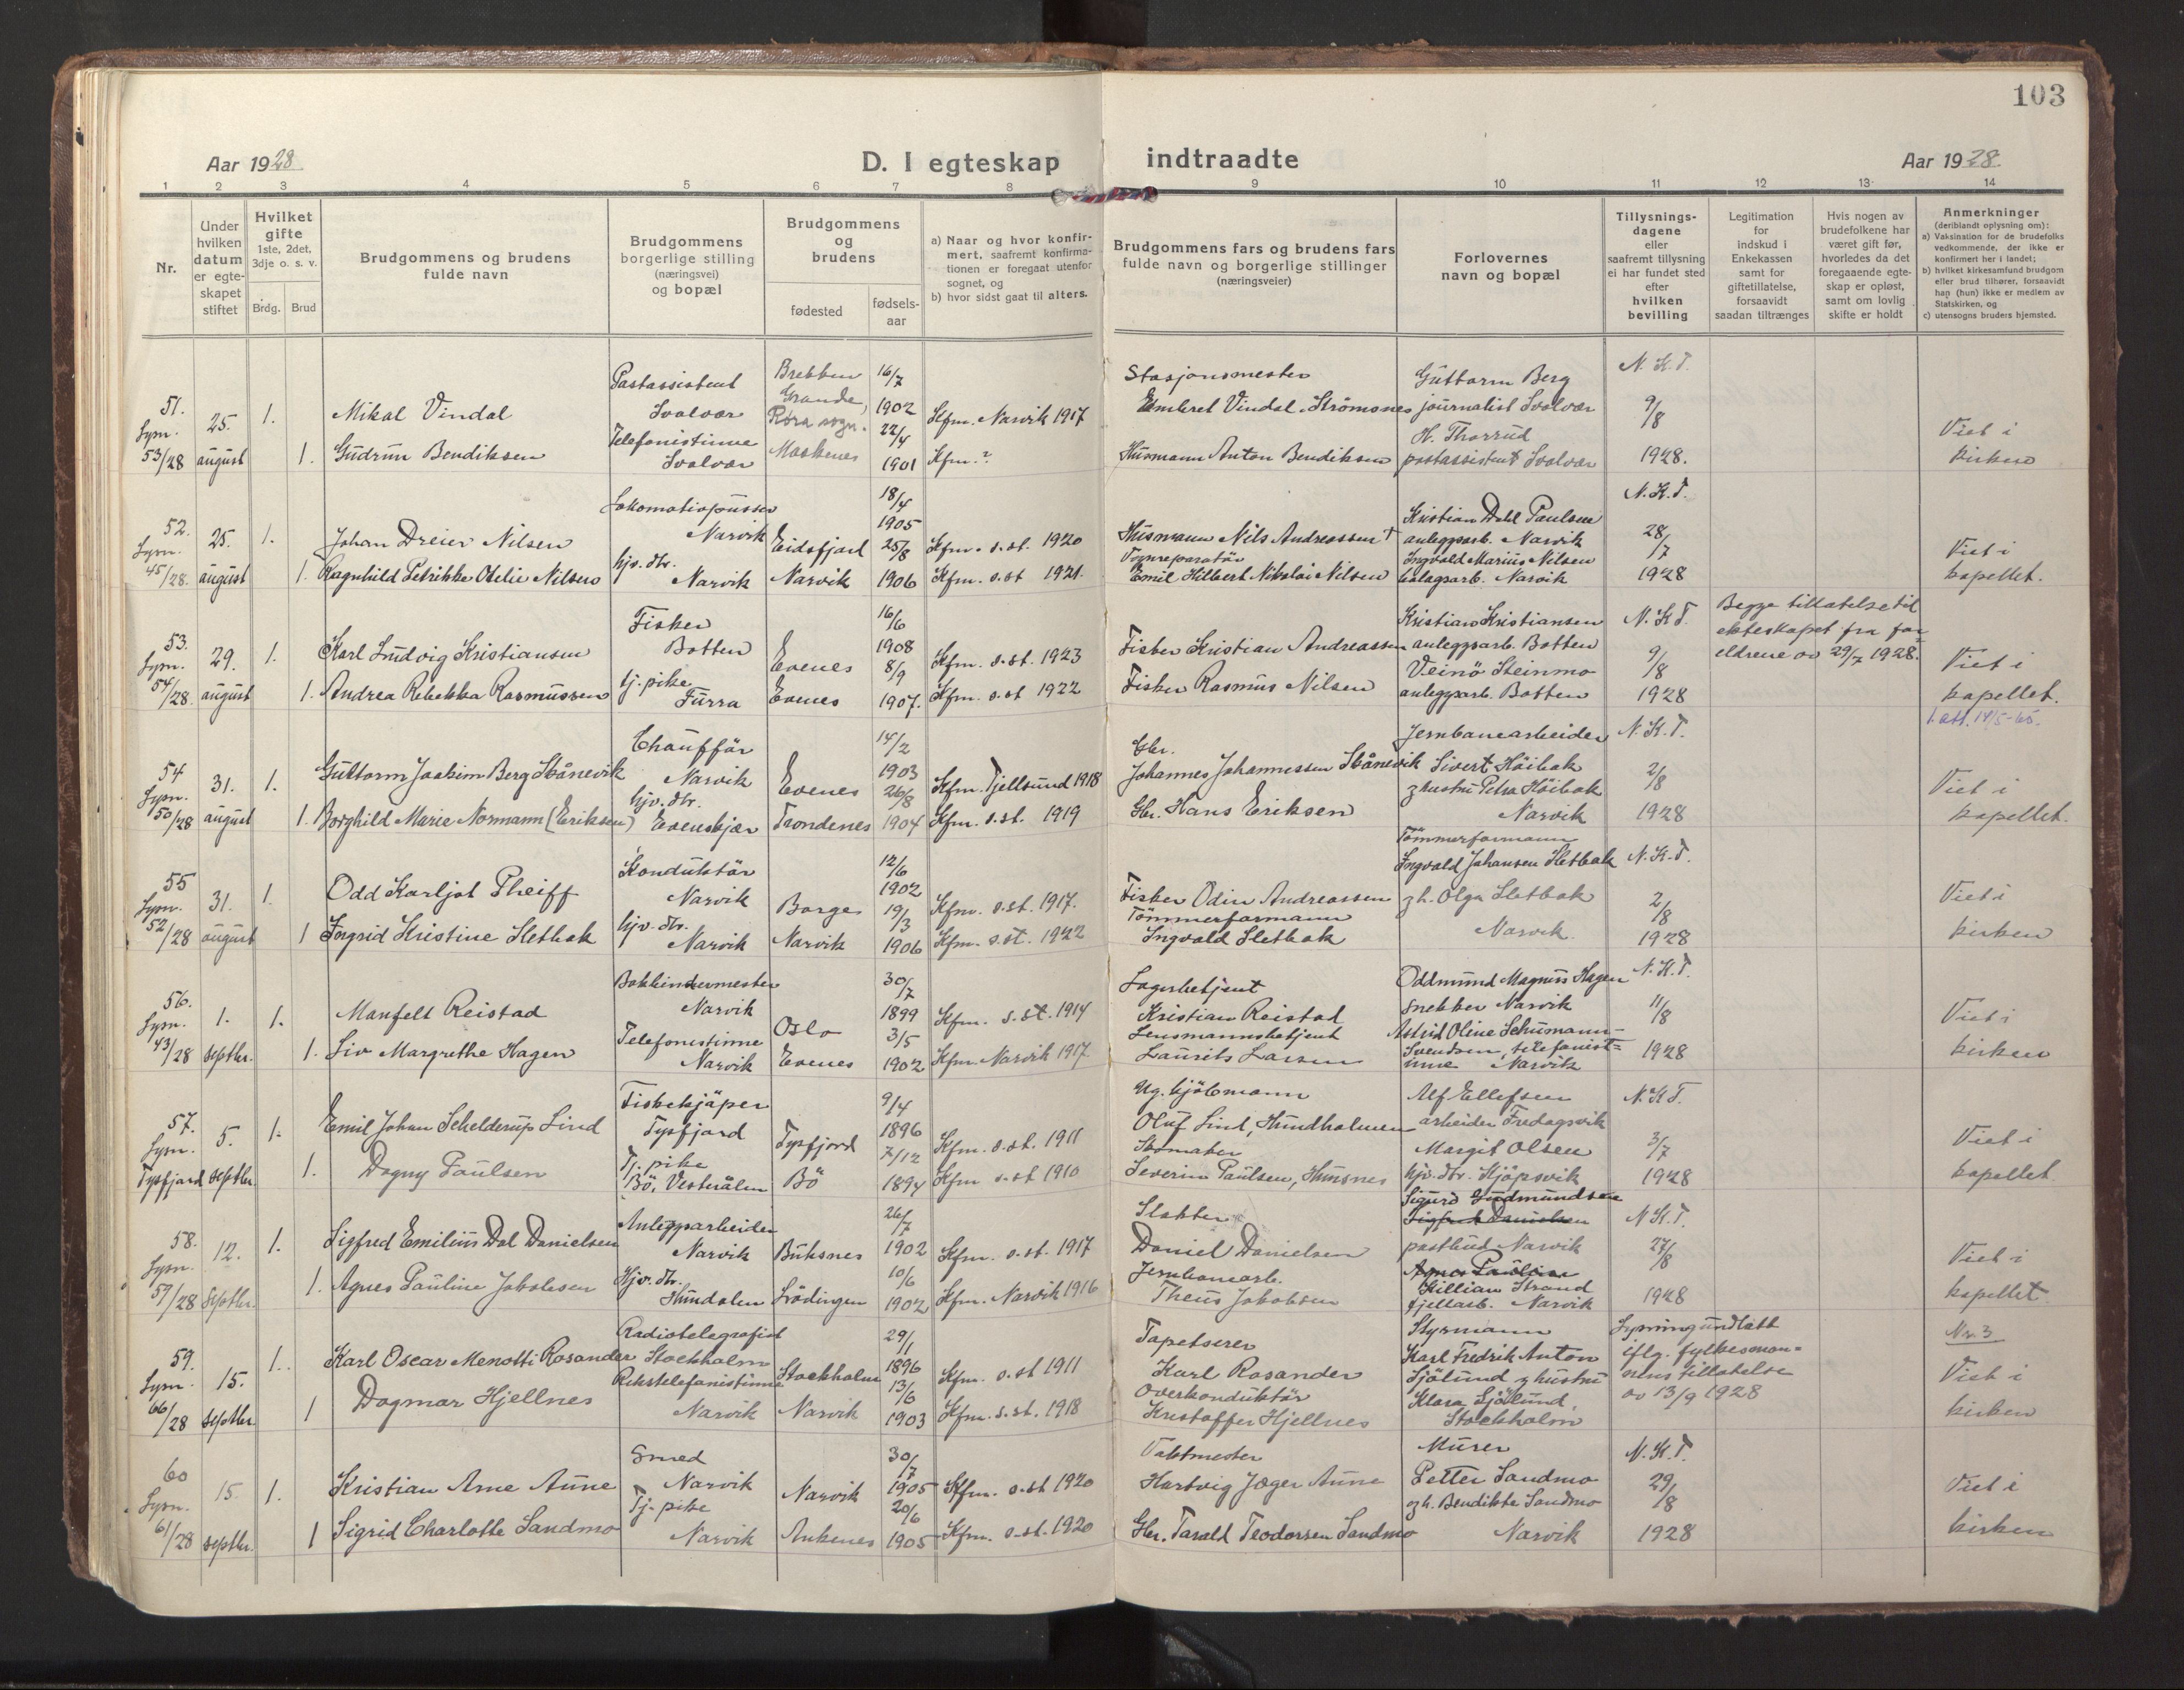 103
Aar 1928
D. I egteskap
indtraadte
Aar 1928.
1 2 3 4 5 6 7 8 9 10 11 12 13 14
Nr.
Under
hvilken
datum
er egte-
skapet
stiftet
Hvilket
gifte
1ste, 2det,
3dje o. s. v.
Brdg. Brud
Brudgommens og brudens
fulde navn
Brudgommens
borgerlige stilling
(næringsvei)
og bopæl
Brudgommens
og
brudens
fødested
fødsels-
aar
a) Naar og hvor konfir-
mert, saafremt konfirma-
tionen er foregaat utenfor
sognet, og
b) hvor sidst gaat til alters.
Brudgommens fars og brudens fars
fulde navn og borgerlige stillinger
(næringsveier)
Forlovernes
navn og bopæl
Tillysnings-
dagene
eller
saafremt tillysning
ei har fundet sted
efter
hvilken
bevilling
Legitimation
for
indskud i
Enkekassen
samt for
giftetillatelse,
forsaavidt
saadan tiltrænges
Hvis nogen av
brudefolkene har
været gift før,
hvorledes da det
foregaaende egte-
skap er opløst,
samt om lovlig
skifte er holdt
Anmerkninger
(deriblandt oplysning om):
a) Vaksination for de brudefolks
vedkommende, der ikke er
konfirmert her i landet;
b) hvilket kirkesamfund brudgom
eller brud tilhører, forsaavidt
han (hun) ikke er medlem av
Statskirken, og
c) utensogns bruders hjemsted.
51.
Lysn.
53/28
25.
august
1.
1.
Mikal Vindal
Gudrun Bendiksen
Postassistent
Svolvær
Telefonistinne
Svolvær
Brekken
Grande,
Røra sogn.
Moskenes
16/7
1902
22/4
1901
Kfm. Narvik 1917
Kfm.?
Stasjonsmester
Embret Vindal, Strömsnes
Husmann Anton Bendiksen
Guttorm Berg
journalist Svolvær
H. Thorrud
postassistent Svolvær
N. K. T.
9/8
1928.
Viet i
kirken
52.
Lysn.
45/28.
25.
august
1.
1.
Johan Dreier Nilsen
Ragnhild Petrikke Otelie Nilsen
Lokomotivpusser
Narvik
hjv. dtr.
Narvik
Eidsfjord
Narvik
18/4
1905
25/8
1906
Kfm. s. st. 1920
Kfm. s. st 1921.
Husmann Nils Andreassen †
Vognreparatör
Emil Hilbert Nikolai Nilsen
Kristian Dahl Paulsen
anleggsarb. Narvik
Ingvald Marius Nilsen
bolagsarb. Narvik
N. K. T.
28/7
1928
Viet i
kapellet.
53.
Lysn.
54/28.
29.
august
1.
1.
Karl Ludvig Kristiansen
Andrea Rebekka Rasmussen
Fisker
Botten
tj. pike
Furra
Evenes
Evenes
16/6
1908
8/9
1907.
Kfm. s. st. 1923
Kfm. s. st 1922
Fisker Kristian Andreassen
Fisker Rasmus Nilsen
Kristian Kristiansen
anleggsarb. Botten
Veinö Steinmo
anleggsarb. Botten
N. K T.
9/8
1928
Begge tillatelse til
ekteskapet fra for=
eldrene av 29/7 1928.
Viet i
kapellet.
1. att. 14/5-65.
54
Lysn.
50/28
31.
august
1.
1.
Guttorm Joakim Berg Skånevik
Borghild Marie Normann (Eriksen)
Chaufför
Narvik
hjv. dtr.
Evenskjær
Evenes
Trondenes
14/2
1903
26/8
1904
Kfm. Tjellsund 1918
Kfm. s. st. 1919
Gbr.
Johannes Johannessen Skånevik
Gbr. Hans Eriksen
Jernbanearbeider
Sivert Höibak
g hustru Petra Höibak
Narvik
N. K. T.
2/8
1928
Viet i
kapellet.
55
Lysn.
52/28
31.
august
1.
1
Odd Karljot Pheiff
Ingrid Kristine Sletbak
Konduktör
Narvik
hjv. dtr.
Narvik
Borge
Narvik
12/6
1902
19/3
1906
Kfm. s. st. 1917.
Kfm. s. st. 1922
Fisker Odin Andreassen
Tömmerformann
Ingvald Sletbak
Tömmerformann
Ingvald Johansen Sletbak
g h. Olga Sletbak
Narvik.
N. K. T.
2/8
1928
Viet i
kirken
56.
Lysn.
43/28
1.
septbr.
1.
1.
Manfelt Reistad
Liv Margrethe Hagen
Bokbindermester
Narvik
Telefonistinne
Narvik
Oslo
Evenes
30/7
1899
3/5
1902
Kfm. s. st. 1914
Kfm. Narvik 1917.
Lagerbetjent
Kristian Reistad
Lensmannsbetjent
Laurits Larsen
Oddmund Magnus Hagen
snekker Narvik
Astrid Oline Schumann-
Svendsen, telefonist=
inne Narvik
N. K. T.
11/8
1928
Viet i
kirken
57.
Lysn.
Tysfjord
5.
septbr.
1.
1.
Emil Johan Schelderup Lind
Dagny Paulsen
Fiskekjöper
Tysfjord
Tj. pike
Bö, Vesterålen
Tysfjord
Bö
9/4
1896
7/12
1894
Kfm. s. st. 1911
Kfm s. st 1910
Ug. kjöbmann
Oluf Lind, Hundholmen
Skomaker
Severin Paulsen, Hunsnes
Alf Ellefsen
arbeider Fredagsvik
Margit Olsen
hjv. dtr. Kjöpsvik
N. K T.
3/7
1928
Viet i
kapellet.
58.
Lysn.
59/28
12.
septbr.
1.
1.
Sigfred Emilius Dal Danielsen
Agnes Pauline Jakobsen
Anleggsarbeider
Narvik
Hjv. dtr.
Hundalen
Buksnes
Lödingen
26/7
1902
10/6
1902
Kfm. s. st. 1917
Kfm. Narvik 1916
Slakter
Daniel Danielsen
Jernbanearb.
Theus Jakobsen
Sigurd Gudmundsen
Sigfred Danielsen
postbud Narvik
Agnes Pauline
Killian Strand
fjellarb. Narvik
N. K. T.
27/8
1928
Viet i
kapellet.
59.
Lysn.
66/28
15.
septbr.
1.
1
Karl Oscar Menotti Rosander
Dagmar Hjellnes
Radiotelegrafist
Stockholm
Rikstelefonistinne
Narvik
Stockholm
Narvik
29/1
1896
13/6
1903
Kfm. s. st 1911
Kfm. s. st. 1918
Tapetserer
Karl Rosander
Overkonduktör
Kristoffer Hjellnes
Styrmann
Karl Fredrik Anton
Sjölund g hustru
Klara Sjölund,
Stockholm
Lysning undlatt
iflg. fylkesman=
nens tillatelse
av 13/9 1928
Nr. 3
Viet i
kirken
60
Lysn.
61/28
15.
septbr.
1.
1
Kristian Arne Aune
Sigrid Charlotte Sandmo
Smed
Narvik
Tj. pike
Narvik
Narvik
Ankenes
30/7
1905
20/6
1905
Kfm. s. st 1920
Kfm. s. st. 1920
Vaktmester
Hartvig Jæger Aune
Gbr. Tarald Teodorsen Sandmo
Murer
Petter Sandmo
g h. Bendikte Sandmo
Narvik
N. K. T.
29/8
1928
Viet i
kirken